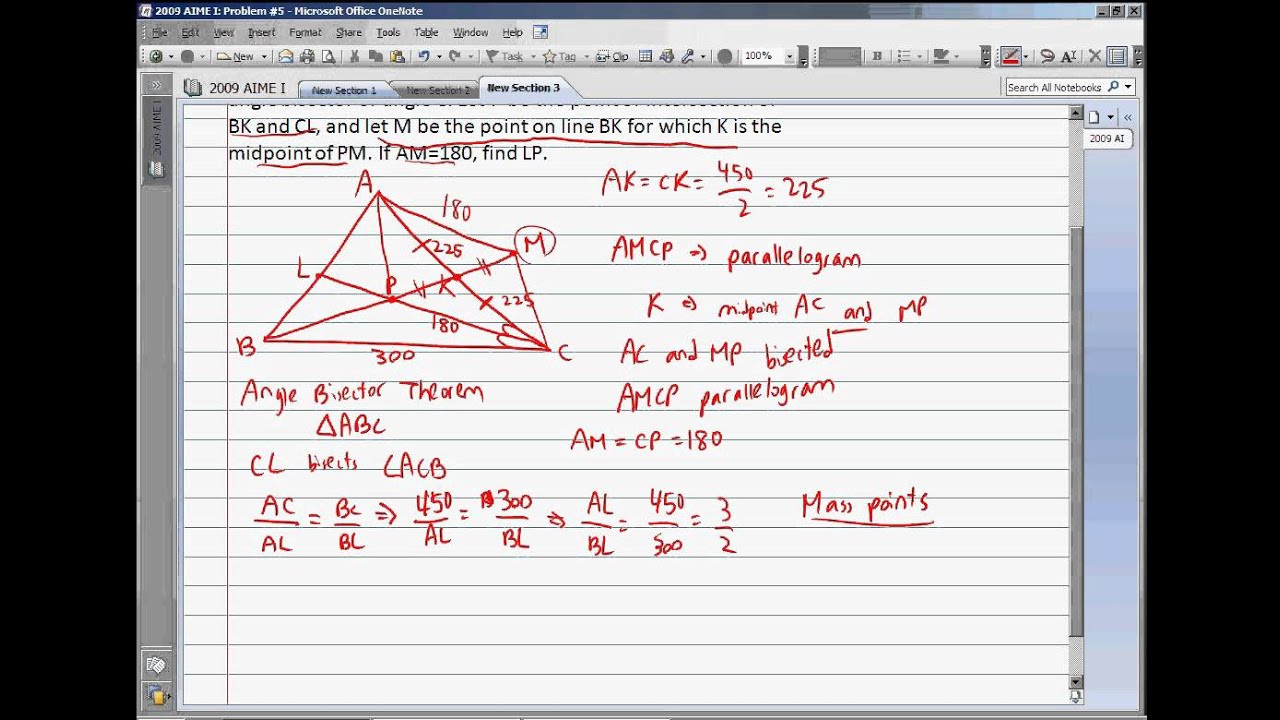 2009 AIME I: Problem #5 - Microsoft Office OneNote
File Edit View Insert Format Share Tools Table Window Help
New Task Tag Clip 100% B A
2009 AIME I New Section 1 New Section 2 New Section 3 Search All Notebooks
2009 AIME I
2009 AI
BK and CL, and let M be the point on line BK for which K is the
midpoint of PM. If AM=180, find LP.
A
180
M
225
L
P
K
225
180
B
300
C
AK = CK = 450/2 = 225
AMCP ⇒ parallelogram
K ⇒ midpoint AC and MP
AC and MP bisected
AMCP parallelogram
AM = CP = 180
Angle Bisector Theorem
△ABC
CL bisects ∠ACB
AC/AL = BC/BL ⇒ 450/AL = 300/BL ⇒ AL/BL = 450/300 = 3/2
Mass points